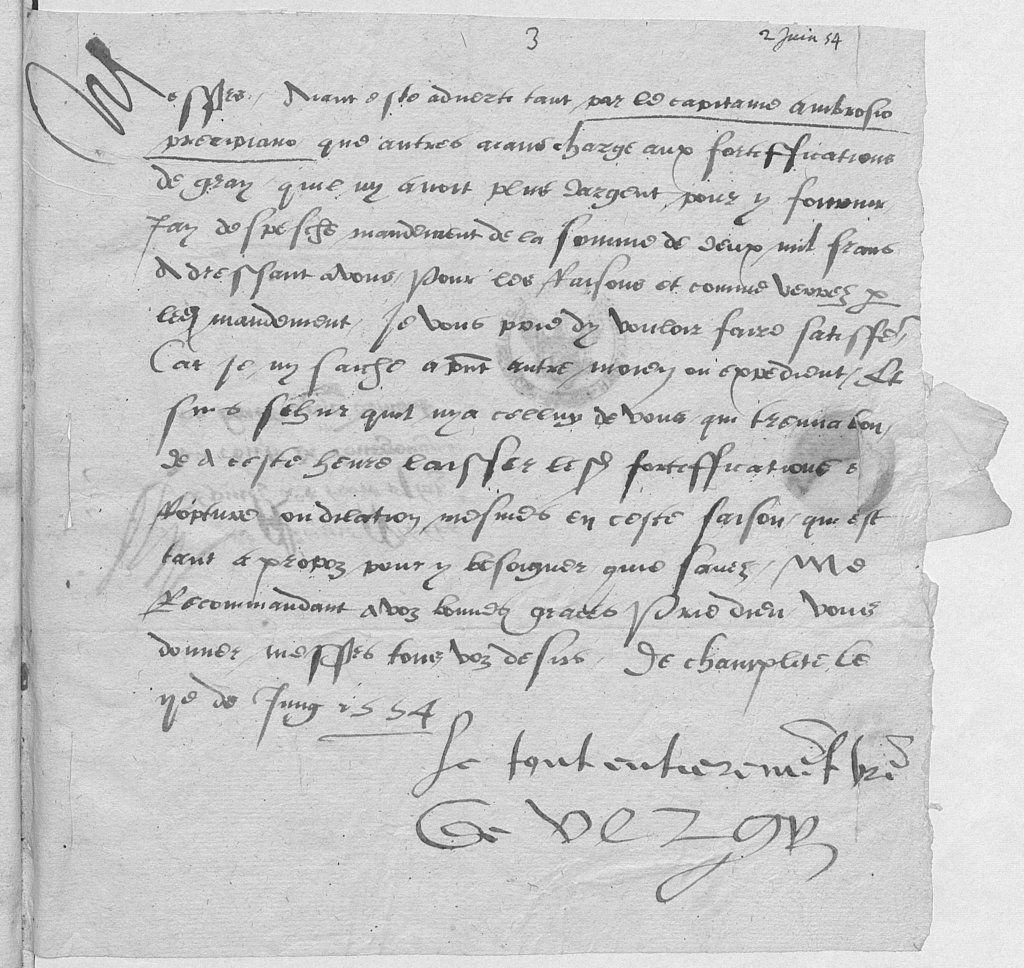 3
2 Juin 54
Messrs, Aiant este adverti tant par le capitaine Ambrosio
precipiano que autres aians charge aux fortiffications
de gray quil ny avoit plus dargent pour y fournir,
Jay despesche mandement de la somme de deux mil frans
Adressant a vous, Pour les Raisons et comme verrez p
led mandement, Je vous prie dy vouloir faire satisffe,
Car je ny saiche a pnt autre moien ou expedient, Et
suis sehur quil nya celluy de vous qui trenua bon,
de A ceste heure laisser lesd fortiffications e
Roptures ou dilation mesmes en ceste saison, qui est
tant a propoz pour y besoigner que savez, Me
Recommandant a voz bonnes graces Prie dieu vous
donner, messrs tous voz desirs, De champlite le
ije de Jung 1554
Le tout entierement vre
G de Vergy